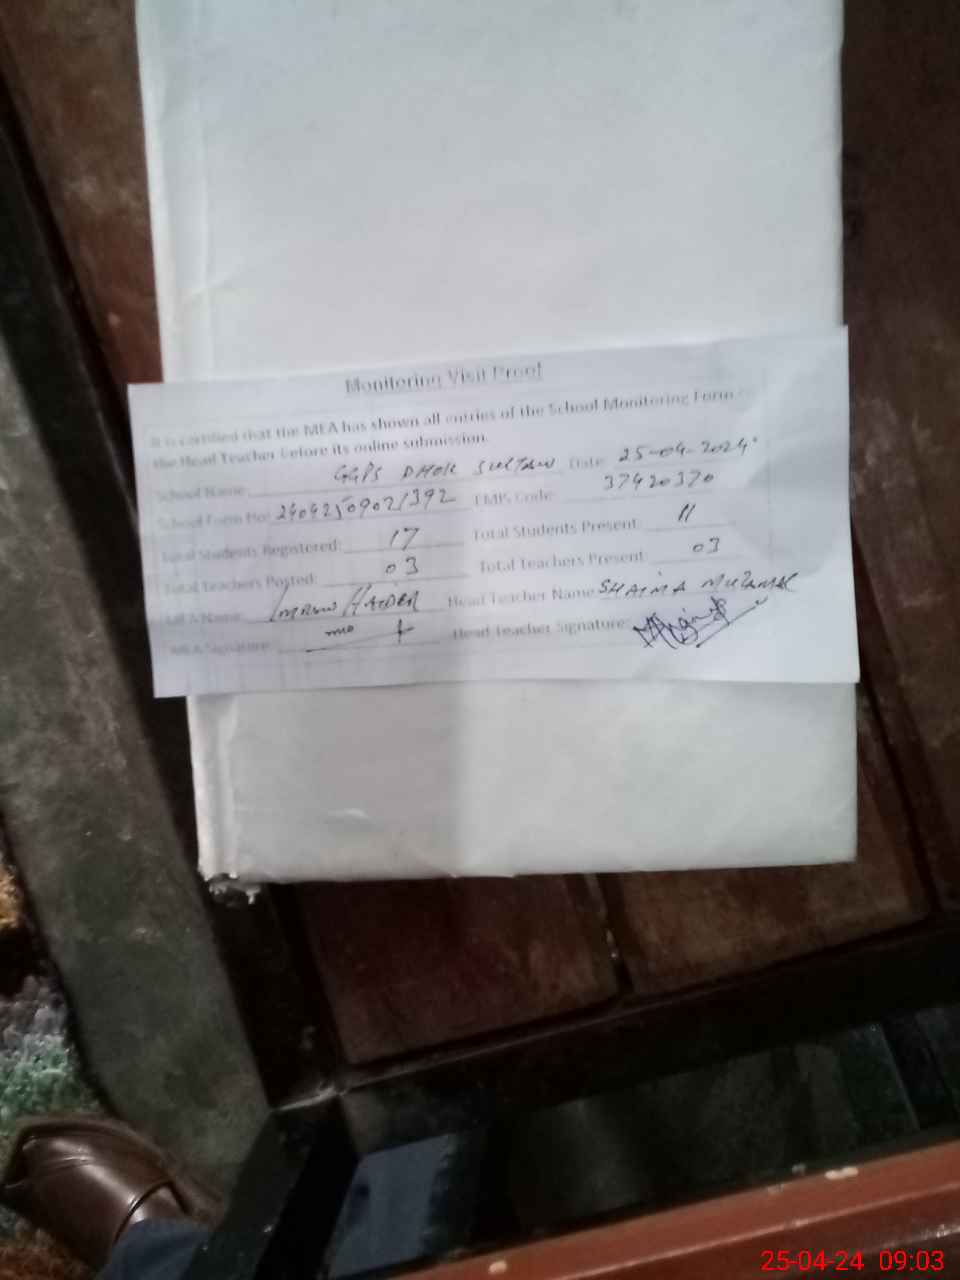 Monitoring Visit Proof
It is certified that the MEA has shown all entries of the School Monitoring Form
the Head Teacher before its online submission.
School Name: GGPS DHOK SULTAN Date: 25-04-2024
School Form No: 24042509021392 EMIS Code: 37420370
Total Students Registered: 17 Total Students Present: 11
Total Teachers Posted: 03 Total Teachers Present: 03
MEA Name: IMRAN HAIDER Head Teacher Name SHAIMA
MEA Signature: Head Teacher Signature:
25-04-24 09:03